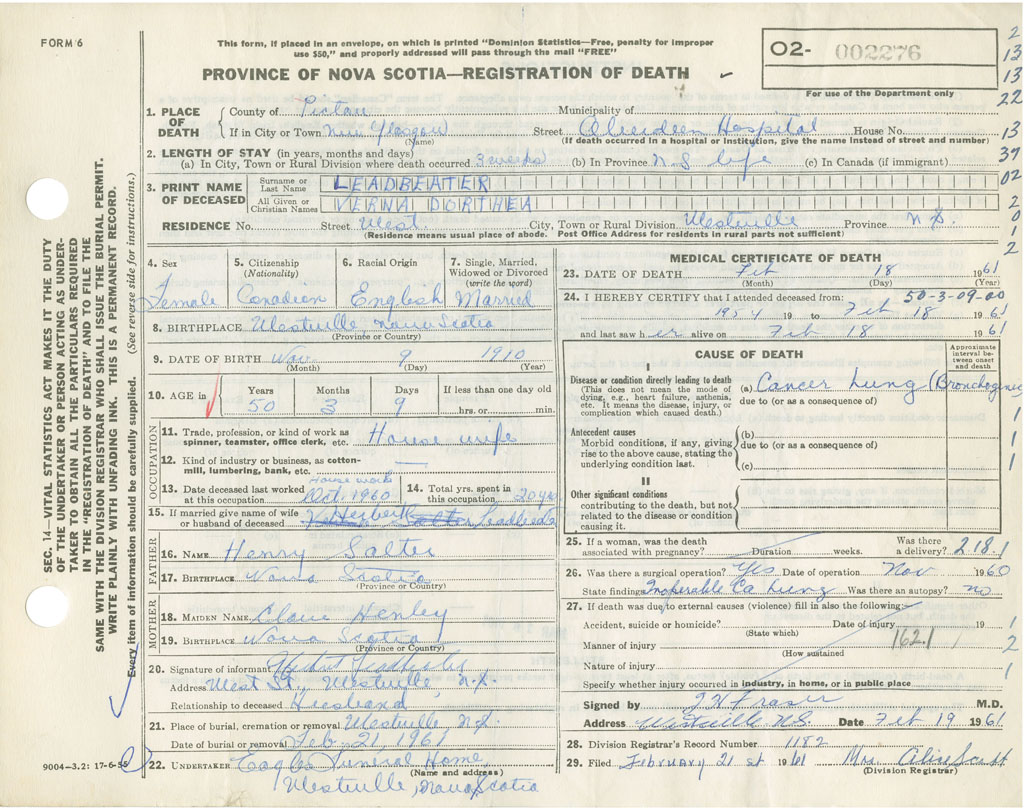 FORM 6
This form, if placed in an envelope, on which is printed "Dominion Statistics—Free, penalty for improper
use $50," and properly addressed will pass through the mail "FREE"
PROVINCE OF NOVA SCOTIA—REGISTRATION OF DEATH
02- 002276
For use of the Department only
2
13
13
22
13
37
02
2
0
1
2
1. PLACE OF DEATH
County of Pictou Municipality of
If in City or Town New Glasgow Street Aberdeen Hospital House No.
(Name) (If death occurred in a hospital or institution, give the name instead of street and number)
2. LENGTH OF STAY (in years, months and days)
(a) In City, Town or Rural Division where death occurred 3 weeks (b) In Province N S life (c) In Canada (if immigrant)
3. PRINT NAME OF DECEASED
Surname or Last Name LEADBEATER
All Given or Christian Names VERNA DORTHEA
RESIDENCE No. Street West. City, Town or Rural Division Westville Province N S.
(Residence means usual place of abode. Post Office Address for residents in rural parts not sufficient)
4. Sex Female
5. Citizenship (Nationality) Canadian
6. Racial Origin English
7. Single, Married, Widowed or Divorced (write the word) Married
8. BIRTHPLACE Westville, Nova Scotia
(Province or Country)
9. DATE OF BIRTH Nov 9 1910
(Month) (Day) (Year)
10. AGE in Years 50 Months 3 Days 9 If less than one day old
hrs. or min.
OCCUPATION
11. Trade, profession, or kind of work as spinner, teamster, office clerk, etc. House wife
12. Kind of industry or business, as cotton-mill, lumbering, bank, etc. —
13. Date deceased last worked at this occupation House work Oct. 1960
14. Total yrs. spent in this occupation 20 yrs.
15. If married give name of wife or husband of deceased Herbert Salter Leadbeater
FATHER
16. NAME Henry Salter
17. BIRTHPLACE Nova Scotia
(Province or Country)
MOTHER
18. MAIDEN NAME Henley
19. BIRTHPLACE Nova Scotia
(Province or Country)
20. Signature of informant Herbert Leadbeater
Address West St., Westville, N.S.
Relationship to deceased Husband
21. Place of burial, cremation or removal Westville N.S.
Date of burial or removal Feb 21, 1961
22. UNDERTAKER Eagles Funeral Home
(Name and address)
Westville, Nova Scotia
9004-3.2: 17-6-55
MEDICAL CERTIFICATE OF DEATH
23. DATE OF DEATH Feb 18 1961
(Month) (Day) (Year)
24. I HEREBY CERTIFY that I attended deceased from: 50-3-09-00
1954 19 to Feb 18 1961
and last saw her alive on Feb 18 1961
CAUSE OF DEATH
Approximate interval between onset and death
I
Disease or condition directly leading to death
(This does not mean the mode of dying, e.g., heart failure, asthenia, etc. It means the disease, injury, or complication which caused death.)
(a) Cancer Lung (Bronchogenic
due to (or as a consequence of)
Antecedent causes
Morbid conditions, if any, giving rise to the above cause, stating the underlying condition last.
(b)
due to (or as a consequence of)
(c)
II
Other significant conditions
contributing to the death, but not related to the disease or condition causing it.
1
1
1
25. If a woman, was the death associated with pregnancy? Duration weeks. Was there a delivery? 218.1
26. Was there a surgical operation? Yes Date of operation Nov 1960
State findings Inoperable Ca Lung Was there an autopsy? no
27. If death was due to external causes (violence) fill in also the following:—
Accident, suicide or homicide? Date of injury 19
(State which)
Manner of injury 162.1
(How sustained
Nature of injury
Specify whether injury occurred in industry, in home, or in public place
1
2
1
Signed by Fraser M.D.
Address Westville N.S. Date Feb 19 1961
28. Division Registrar's Record Number 1182
29. Filed February 21st 1961 Mrs. Alice Scott
(Division Registrar)
SEC. 14—VITAL STATISTICS ACT MAKES IT THE DUTY
OF THE UNDERTAKER OR PERSON ACTING AS UNDER-
TAKER TO OBTAIN ALL THE PARTICULARS REQUIRED
IN THE "REGISTRATION OF DEATH" AND TO FILE THE
SAME WITH THE DIVISION REGISTRAR WHO SHALL ISSUE THE BURIAL PERMIT.
WRITE PLAINLY WITH UNFADING INK. THIS IS A PERMANENT RECORD.
Every item of information should be carefully supplied. (See reverse side for instructions.)